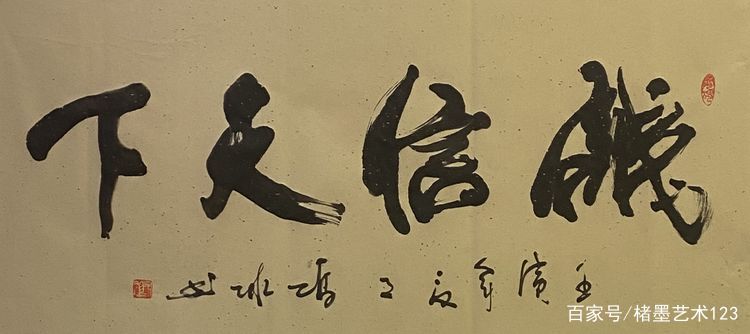 誠信天下
壬寅年夏月馮書
百家号/楮墨艺术123